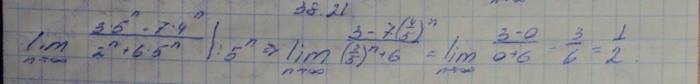 38.21
lim n→∞ (3·5ⁿ - 7·4ⁿ)/(2ⁿ + 6·5ⁿ) |:5ⁿ => lim n→∞ (3 - 7(4/5)ⁿ)/((2/5)ⁿ + 6) = lim n→∞ (3-0)/(0+6) = 3/6 = 1/2.